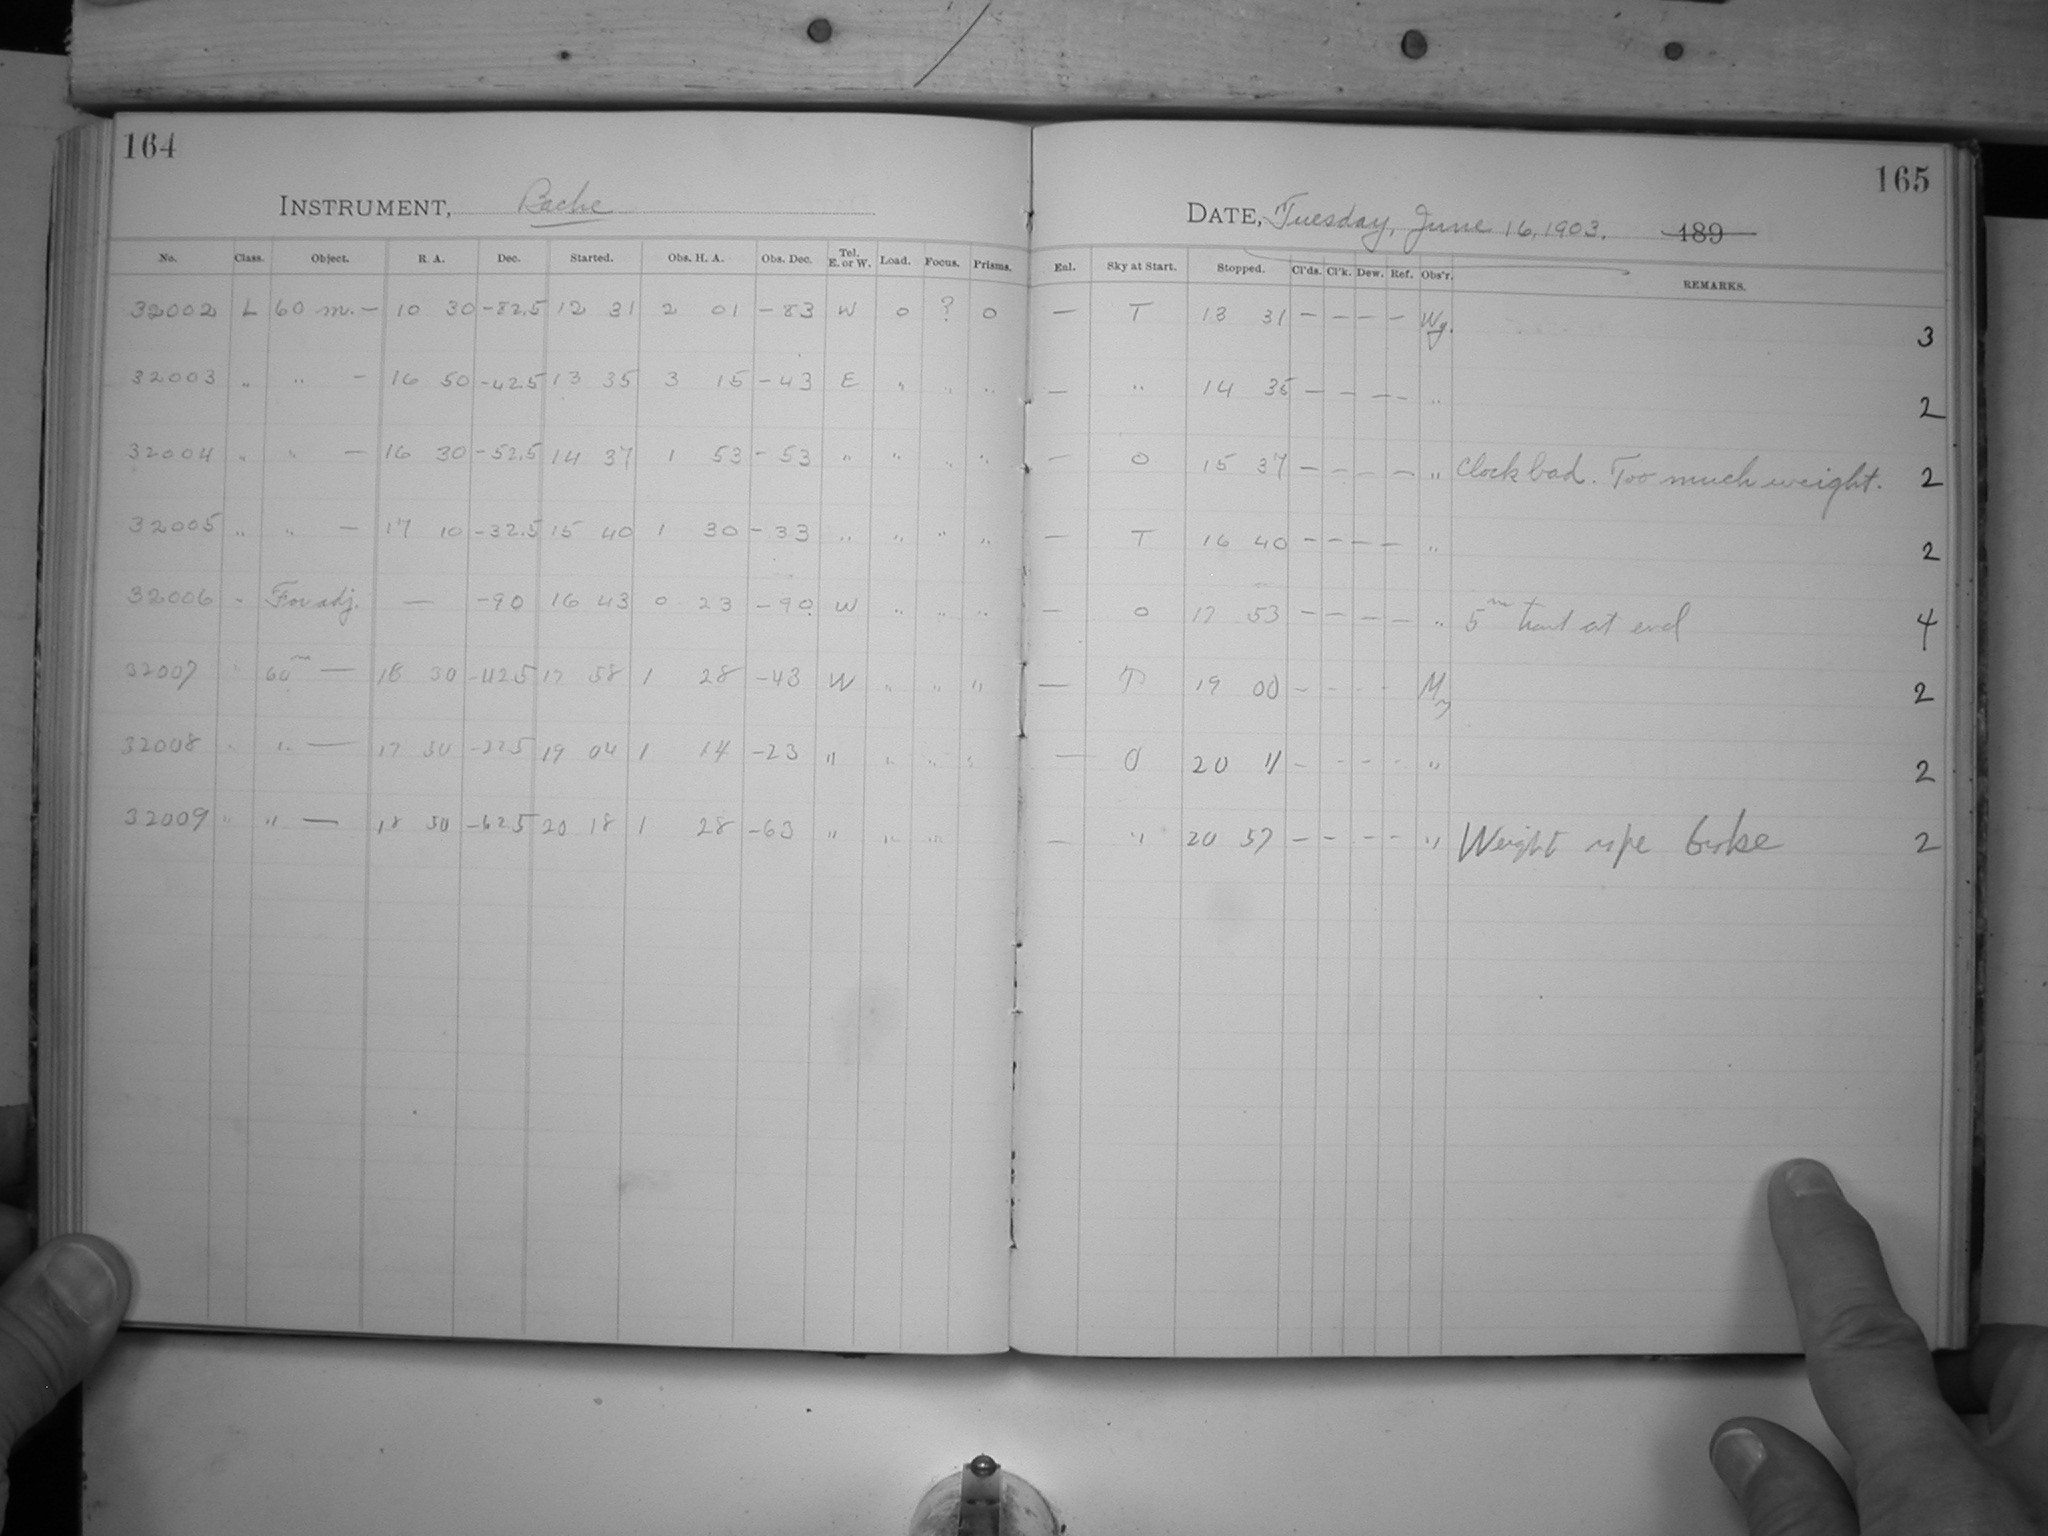 164
INSTRUMENT, Bache
No. Class. Object. R. A. Dec. Started. Obs. H. A. Obs. Dec. Tel. E. or W. Load. Focus. Prisms.
32002 L 60 m. — 10 30 -82.5 12 31 2 01 -83 W 0 ? 0
32003 " " — 16 50 -42.5 13 35 3 15 -43 E " " "
32004 " " — 16 30 -52.5 14 37 1 53 -53 " " " "
32005 " " — 17 10 -32.5 15 40 1 30 -33 " " " "
32006 " For adj. — -90 16 43 0 23 -90 W " " "
32007 " 60m — 18 30 -42.5 17 58 1 28 -43 W " " "
32008 " " — 17 50 -22.5 19 04 1 14 -23 " " " "
32009 " " — 18 50 -62.5 20 18 1 28 -63 " " "
165
DATE, Tuesday, June 16, 1903. 189
Enl. Sky at Start. Stopped. Cl'ds. Cl'k. Dew. Ref. Obs'r. REMARKS.
— T 13 31 — — — — Wy. 3
— " 14 35 — — — — " 2
— 0 15 37 — — — — " Clock bad. Too much weight. 2
— T 16 40 — — — — " 2
— 0 17 53 — — — — " 5m trail at end 4
— T 19 00 - - - - My 2
— 0 20 11 - - - - " 2
— " 20 57 — — — — " Weight rope broke 2